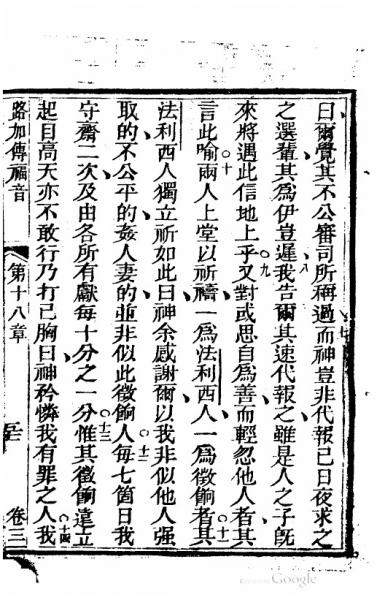 曰爾覺其不公審司所稱過而神豈非代報已日夜求之
七
八
之選輩其爲伊豈遲我告爾其速代報之雖是人之子旣
九
來將遇此信地上乎又對或思自爲善而輕忽他人者其
十
言此喻兩人上堂以祈禱一爲法利西人一爲徵餉者其
十一
法利西人獨立祈如此曰神余感謝爾以我非似他人强
取的不公平的姦人妻的並非似此徵餉人每七箇日我
十二
守齋二次及由各所有獻每十分之一分惟其徵餉遠立
十三
起目高天亦不敢行乃打已胸曰神矜憐我有罪之人我
十四
路加傳福音
第十八章
卷三
Google